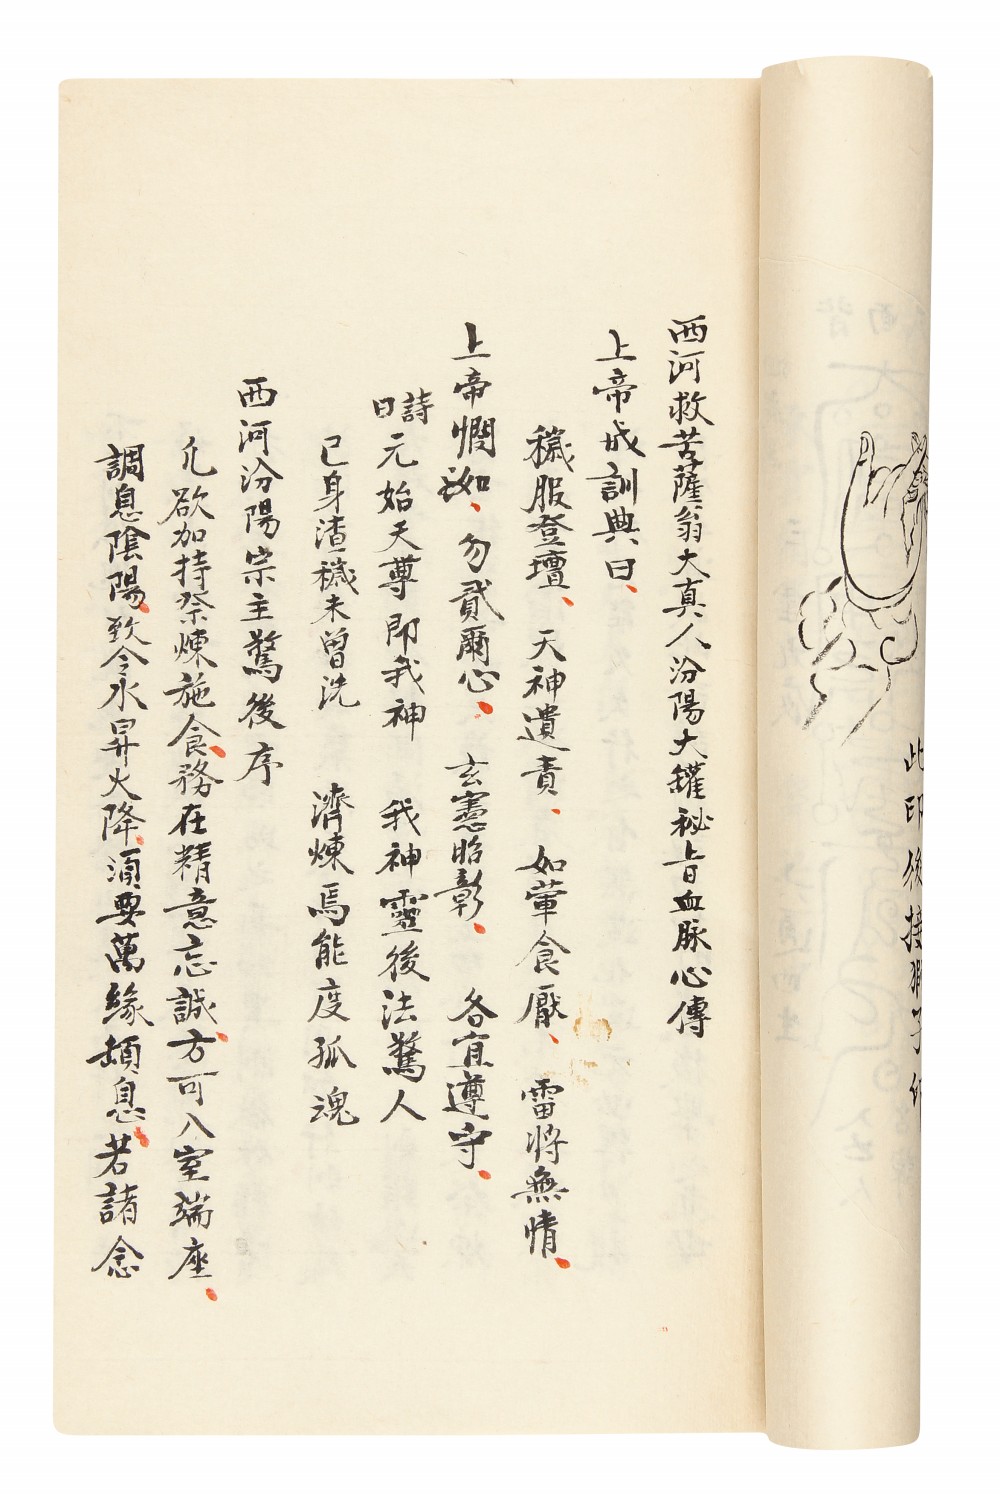 此印後接獅子印
西河救苦薩翁大真人汾陽大鑵祕旨血脉心傳
上帝戒訓典曰、
穢服登壇、天神遺責、如葷食厭、雷將無情、
上帝憫汝、勿貳爾心、玄憲昭彰、各宜遵守、
詩曰元始天尊即我神 我神靈後法驚人
已身渣穢未曾洗 濟煉焉能度孤魂
西河汾陽宗主驚後序
凢欲加持祭煉施食、務在精意忘誠、方可入室端座、
調息陰陽、致令水昇火降、須要萬緣頓息、若諸念